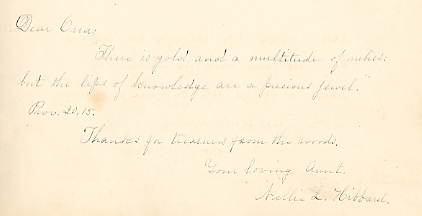 Dear Ona;
There is gold and a multitude of rubies:
but the lips of knowledge are a precious jewel."
Prov. 20, 15.
Thanks for treasures from the woods.
Your loving Aunt.
Nellie L. Hibbard.